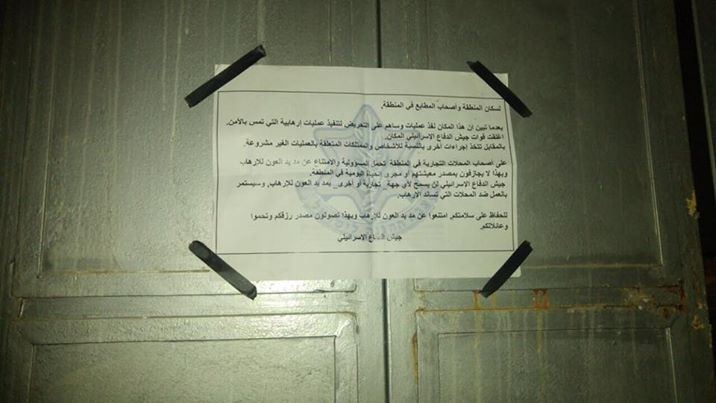 لسكان المنطقة وأصحاب المطابع في المنطقة.
بعدما تبين ان هذا المكان نفذ عمليات وساهم على التحريض لتنفيذ عمليات إرهابية التي تمس بالأمن.
اغلقت قوات جيش الدفاع الإسرائيلي المكان.
بالمقابل تتخذ إجراءات أخرى بالنسبة للأشخاص والممتلكات المتعلقة بالعمليات الغير مشروعة.
على أصحاب المحلات التجارية في المنطقة تحمل المسؤولية والامتناع عن مد يد العون للارهاب
وبهذا لا يجازفون بمصدر معيشتهم أو مجرى الحياة اليومية في المنطقة.
جيش الدفاع الإسرائيلي لن يسمح لأي جهة تجارية أو أخرى بمد يد العون للإرهاب، وسيستمر
بالعمل ضد المحلات التي تساند الارهاب.
للحفاظ على سلامتكم, امتنعوا عن مد يد العون للإرهاب وبهذا تصونون مصدر رزقكم وتحموا
وعائلاتكم.
جيش الدفاع الاسرائيلي